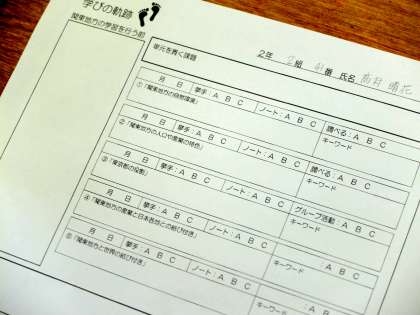 学びの軌跡
関東地方の学習を行う前
単元を貫く課題
2年 2組 番 氏名
月 日 挙手:A B C ノート:A B C 調べる:A B C
①「関東地方の自然環境」 キーワード
月 日 挙手:A B C ノート:A B C 調べる:A B C
②「関東地方の人口や産業の特色」 キーワード
月 日 挙手:A B C ノート:A B C 調べる:A B C
③「東京都の役割」 キーワード
月 日 挙手:A B C ノート:A B C グループ活動:A B C
④「関東地方の産業と日本各地との結び付き」 キーワード
月 日 挙手:A B C ノート:A B C :A B C
⑤「関東地方と世界の結び付き」 キーワード
:A B C
キーワード